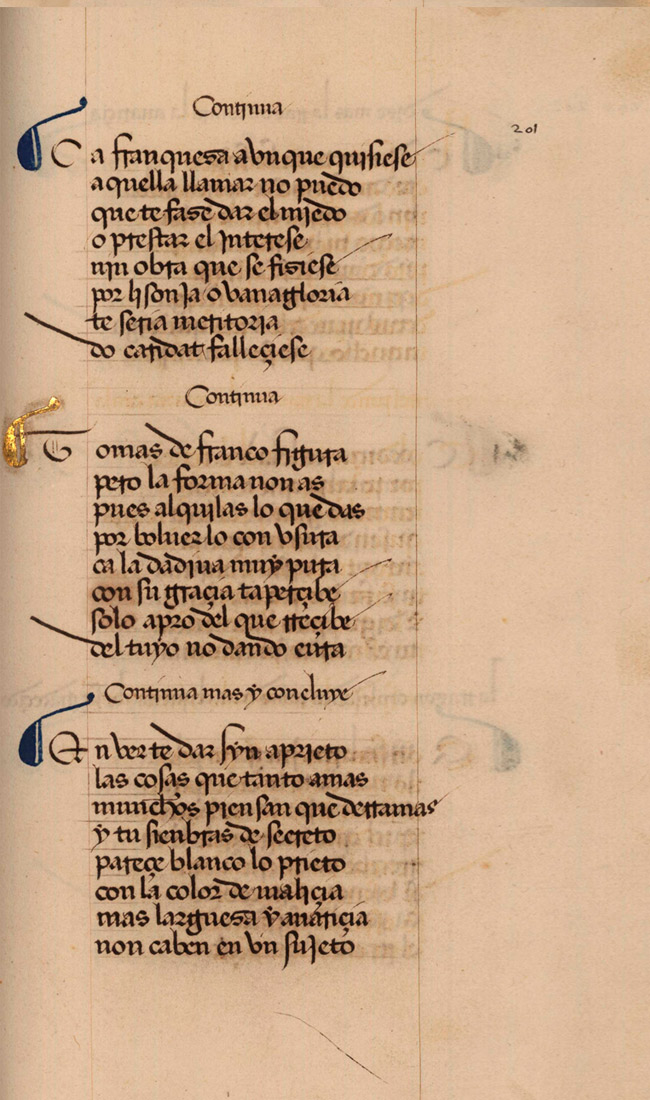 Continua
201
Ca franquesa avnque quisiese
aquella llamar no puedo
que te fase dar el miedo
o prestar el Interese
nin obra que se fisiese
por lisonJa o vanagloria
te seria meritoria
do caridat falleçiese
Continua
Tomas de franco figura
pero la forma non as
pues alquilas lo que das
por boluer lo con vsura
ca la dadiua muy pura
con su graçia taperçibe
solo apro del que rreçibe
del tuyo no dando cura
Continua mas y concluye
En ver te dar syn aprieto
las cosas que tanto amas
munchos piensan que derramas
y tu sienbras de secreto
pareçe blanco lo prieto
con la color de maliçia
mas larguesa y auariçia
non caben en vn sujeto